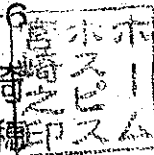 ホーム
ホスピス
宮崎之印